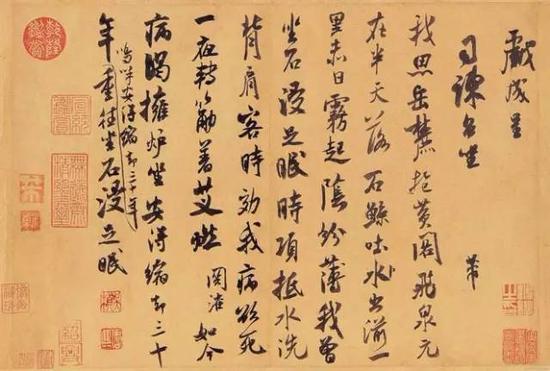 戲成呈
司諫台坐
芾
我思岳麓抱黃閣飛泉元
在半天落石鯨吐水出湔一
里赤日霧起陰紛薄我曾
坐石浸足眠時項抵水洗
背肩客時効我病欲死
一夜轉筋著艾燃 関淮如今
病渴擁爐坐安得縮却三十
嗚呼安得縮却三十年
年重往坐石浸足眠
乾隆鑑賞